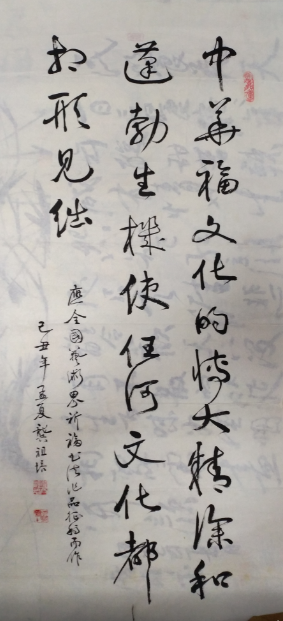 中华福文化的博大精深和
蓬勃生机使任何文化都
相形见绌
应全国艺术界祈福书法作品征稿而作
己丑年孟夏 祖培